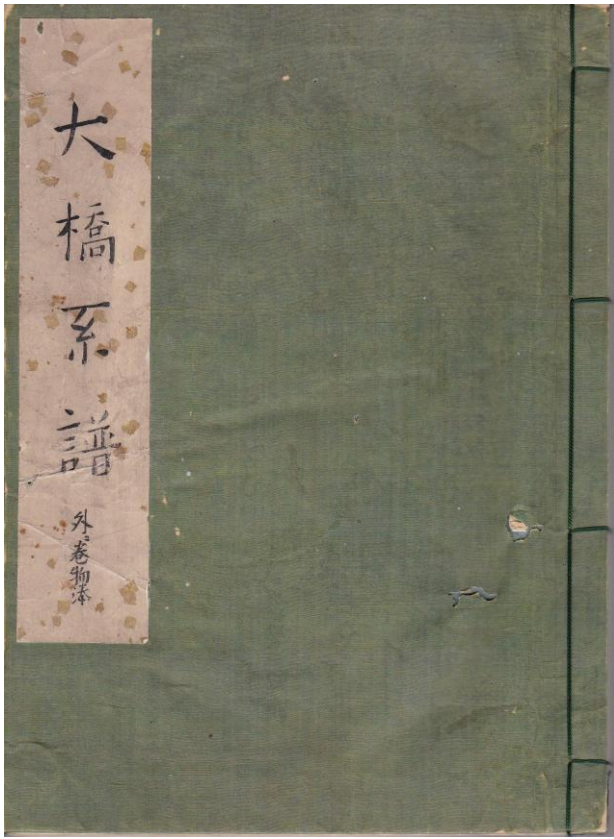 大橋系譜
外ニ巻物添